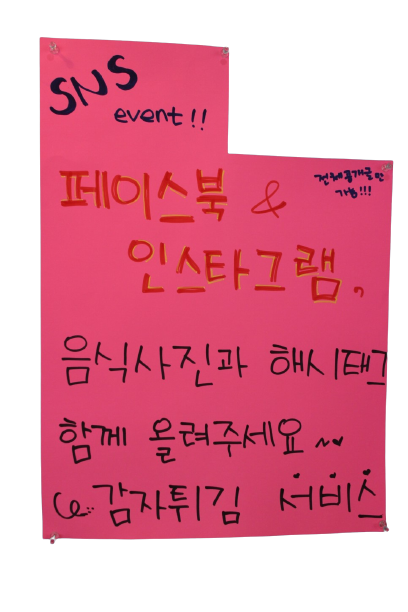 SNS
event!!
전체공개글만
가능!!!
페이스북 &
인스타그램,
음식사진과 해시태그
함께 올려주세요~♥
감자튀김 서비스